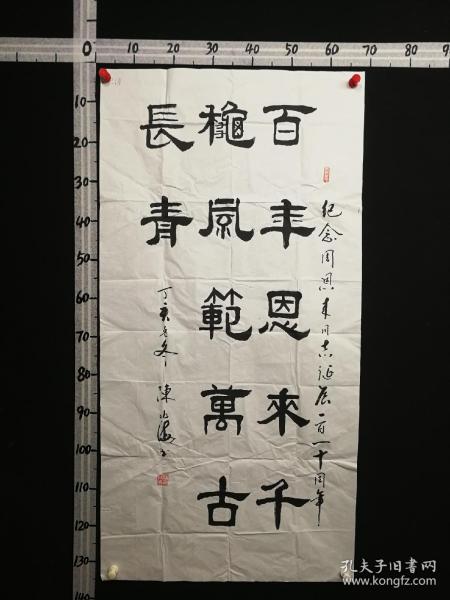 0 10 20 30 40 50 60 70 80 90
10
20
30
40
50
60
70
80
90
100
110
120
130
140
纪念周恩来同志诞辰一百一十周年
百年恩来千
龝風範萬古
長青
丁亥之冬 陳
孔夫子旧书网
www.kongfz.com